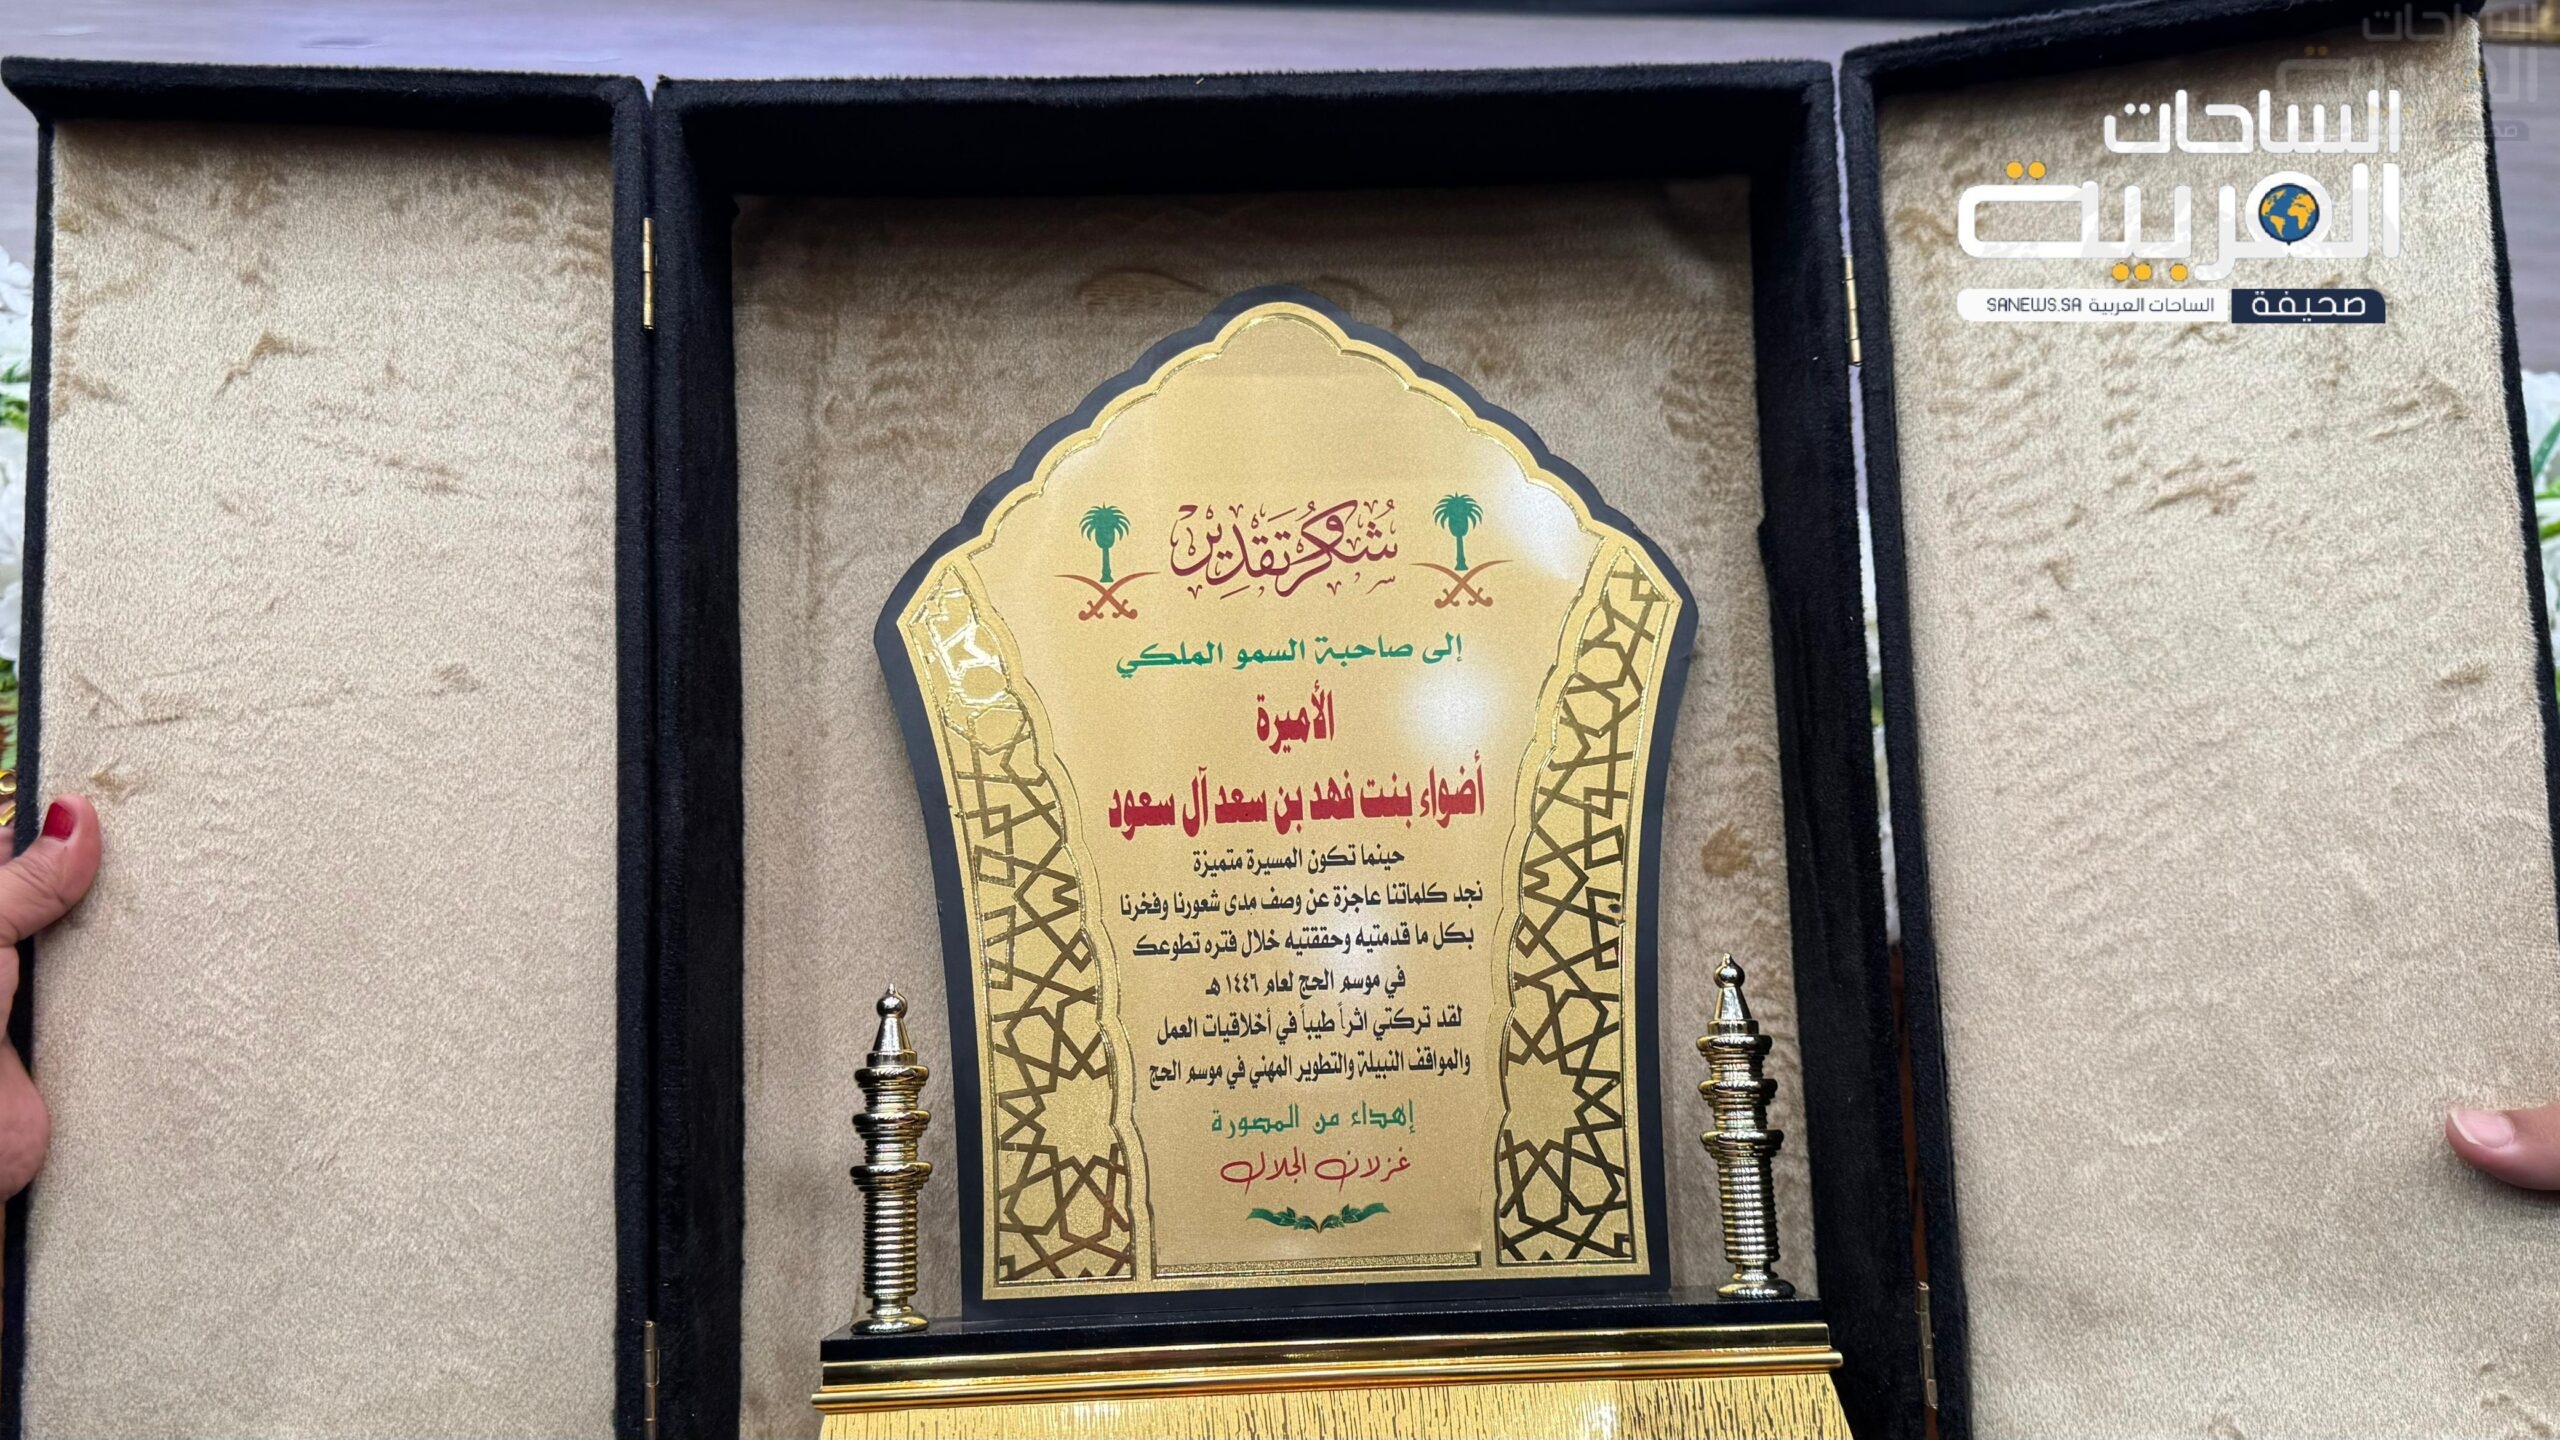 الساحات
العربية
صحيفة
الساحات العربية SANEWS.SA
شكر وتقدير
إلى صاحبة السمو الملكي
الأميرة
أضواء بنت فهد بن سعد آل سعود
حينما تكون المسيرة متميزة
نجد كلماتنا عاجزة عن وصف مدى شعورنا وفخرنا
بكل ما قدمتيه وحققتيه خلال فتره تطوعك
في موسم الحج لعام ١٤٤٦ هـ
لقد تركتي اثراً طيباً في أخلاقيات العمل
والمواقف النبيلة والتطوير المهني في موسم الحج
إهداء من المصورة
غزلان الجلال